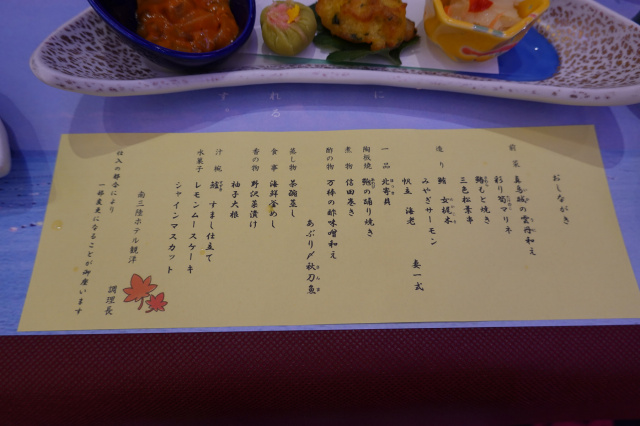 おしながき
前菜 真鳥賊の雲丹和え
彩り筍マリネ
鮑もと焼き
三色松葉串
造り 鮪 女梶木
みやぎサーモン
帆立 海老 妻一式
一品 北寄貝
陶板焼 鮑の踊り焼き
煮物 信田巻き
酢の物 万棒の酢味噌和え
あぶり〆秋刀魚
蒸し物 茶碗蒸し
食事 海鮮釜めし
香の物 野沢菜漬け
柚子大根
汁椀 すまし仕立て
水菓子 レモンムースケーキ
シャインマスカット
南三陸ホテル観洋
調理長
仕入の都合により
一部変更になることが御座います